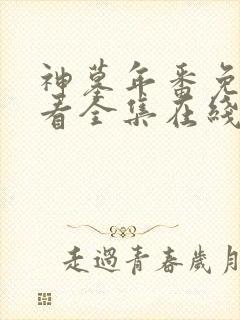 神墓年番免
看全集在线
走過青春歲月